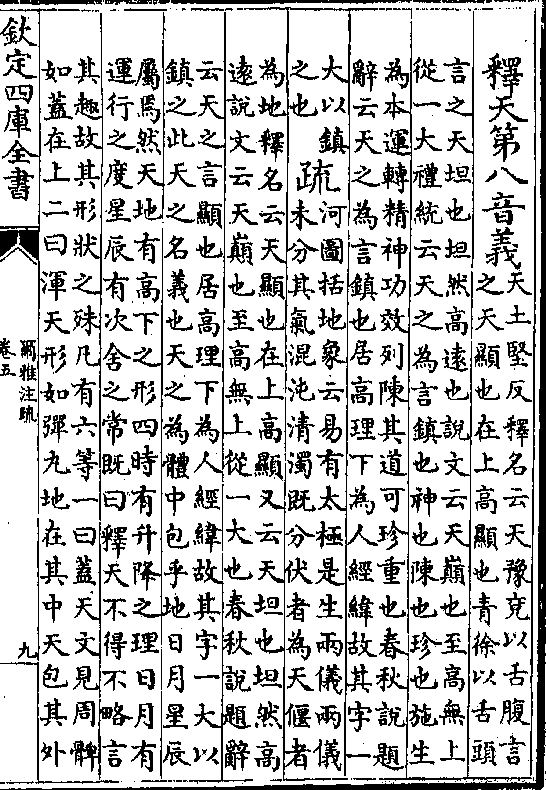 釋天第八音義
天土堅反釋名云天豫兖以舌腹言
之天顯也在上高顯也青徐以舌頭
言之天坦也坦然高逺也說文云天巔也至高無上
從一大禮統云天之為言鎮也神也陳也珍也施生
為本運轉精神功效列陳其道可珍重也春秋說題
辭云天之為言鎮也居高理下為人經緯故其字一
大以鎮
之也
疏
河圖括地象云易有太極是生兩儀兩儀
未分其氣混沌清濁既分伏者為天偃者
為地釋名云天顯也在上高顯又云天坦也坦然高
逺說文云天巔也至高無上從一大也春秋說題辭
云天之言顯也居高理下為人經緯故其字一大以
鎮之此天之名義也天之為體中包乎地日月星辰
屬焉然天地有高下之形四時有升降之理日月有
運行之度星辰有次舍之常既曰釋天不得不略言
其趣故其形狀之殊凡有六等一曰蓋天文見周髀
如蓋在上二曰渾天形如彈丸地在其中天包其外
欽定四庫全書
爾雅注疏
卷五
九